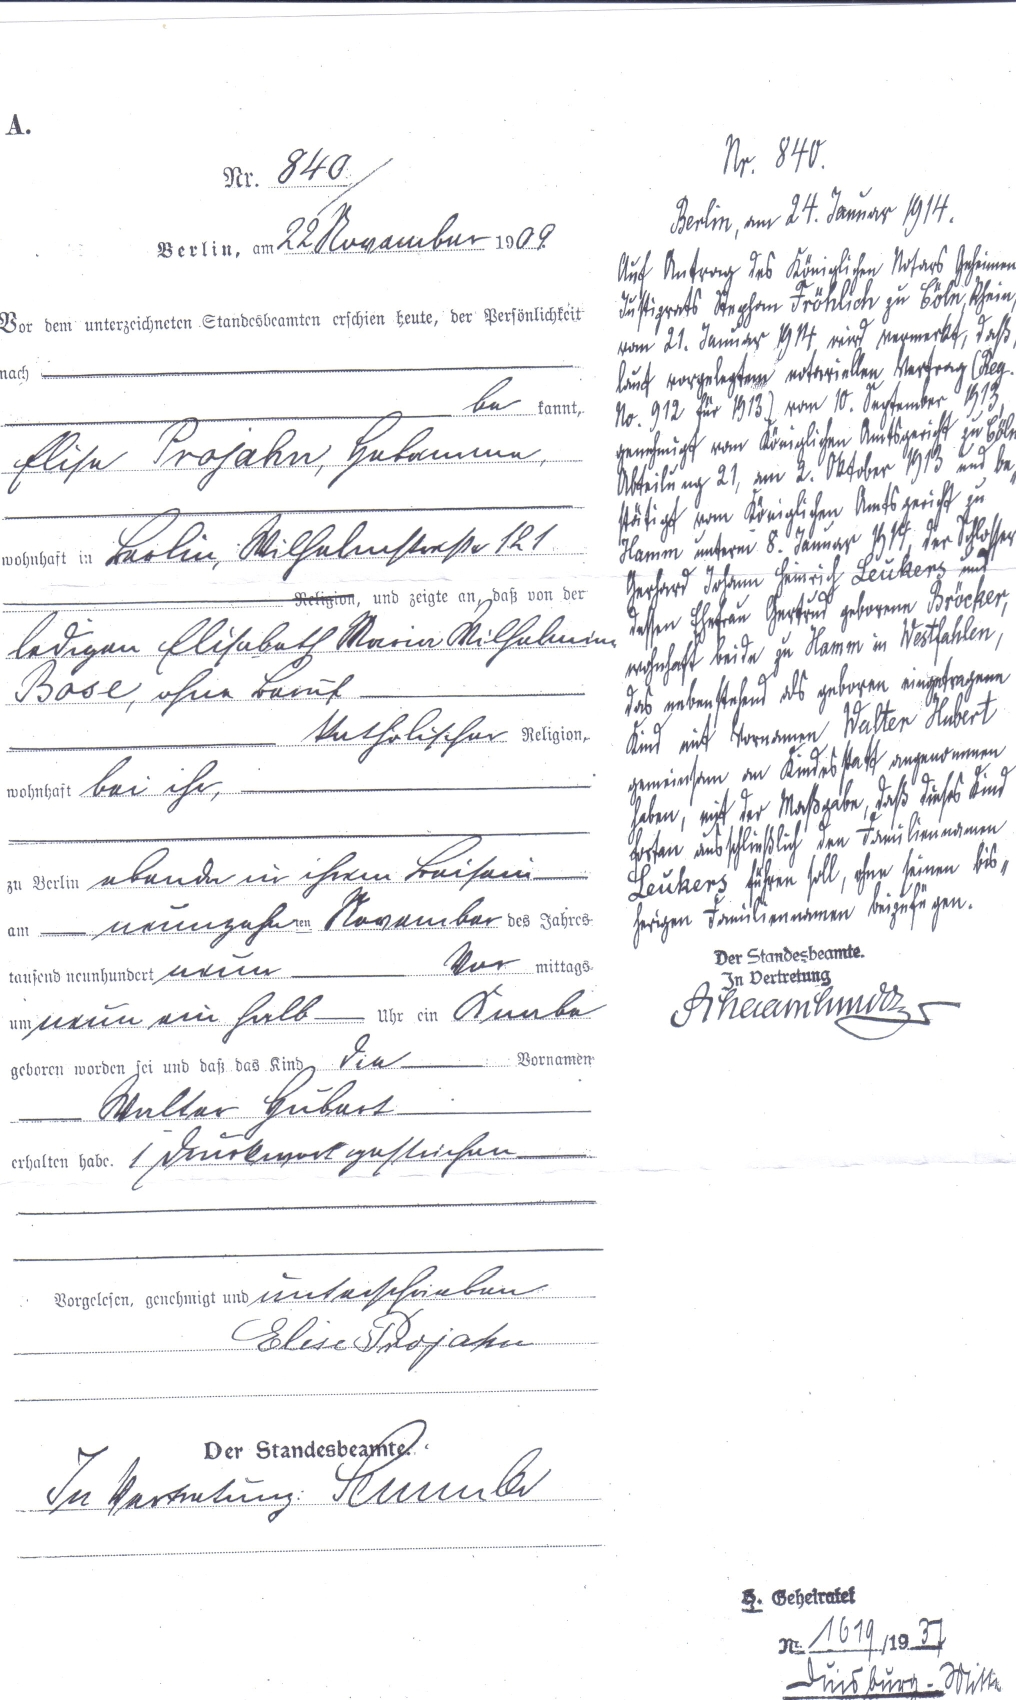 A.
Nr. 840
Berlin, am 22 November 1909
Vor dem unterzeichneten Standesbeamten erschien heute, der Persönlichkeit
nach
be kannt,
Elise Projahn, Hebamme,
wohnhaft in Berlin, Wilhelmstraße 121
Religion, und zeigte an, daß von der
ledigen Elisabeth Maria Wilhelmine
Bose, ohne Beruf
katholischer Religion,
wohnhaft bei ihr,
zu Berlin ebenda in ihrem Beisein
am neunzehnten November des Jahres
tausend neunhundert neun Vor mittags
um neun ein halb Uhr ein Knabe
geboren worden sei und daß das Kind die Vornamen
Walter Hubert
erhalten habe. 1 Druckwort gestrichen
Vorgelesen, genehmigt und unterschrieben
Elise Projahn
Der Standesbeamte.
In Vertretung:
Nr. 840.
Berlin, am 24. Januar 1914.
Auf Antrag des Königlichen Notars Geheimen
Justizrats Stephan Fröhlich zu Cöln, Rhein,
vom 21. Januar 1914 wird vermerkt, daß
laut vorgelegtem notariellen Vertrag (Reg.
No. 912 für 1913) vom 10. September 1913,
genehmigt vom Königlichen Amtsgericht zu Cöln
Abteilung 21, am 2. Oktober 1913 und be„
stätigt vom Königlichen Amtsgericht zu
Hamm unterm 8. Januar 1914, der Schlosser
Gerhard Johann Heinrich Leukers und
dessen Ehefrau Gertrud geborene Bröcker,
wohnhaft beide zu Hamm in Westfahlen,
das nebenstehend als geboren eingetragene
Kind mit Vornamen Walter Hubert
gemeinsam an Kindesstatt angenommen
haben, mit der Maßgabe, daß dieses Kind
fortan ausschließlich den Familiennamen
Leukers führen soll, ohne seinen bis„
herigen Familiennamen beizufügen.
Der Standesbeamte.
In Vertretung
Geheiratet
Nr. 1619/1937
Duisburg-Mitte